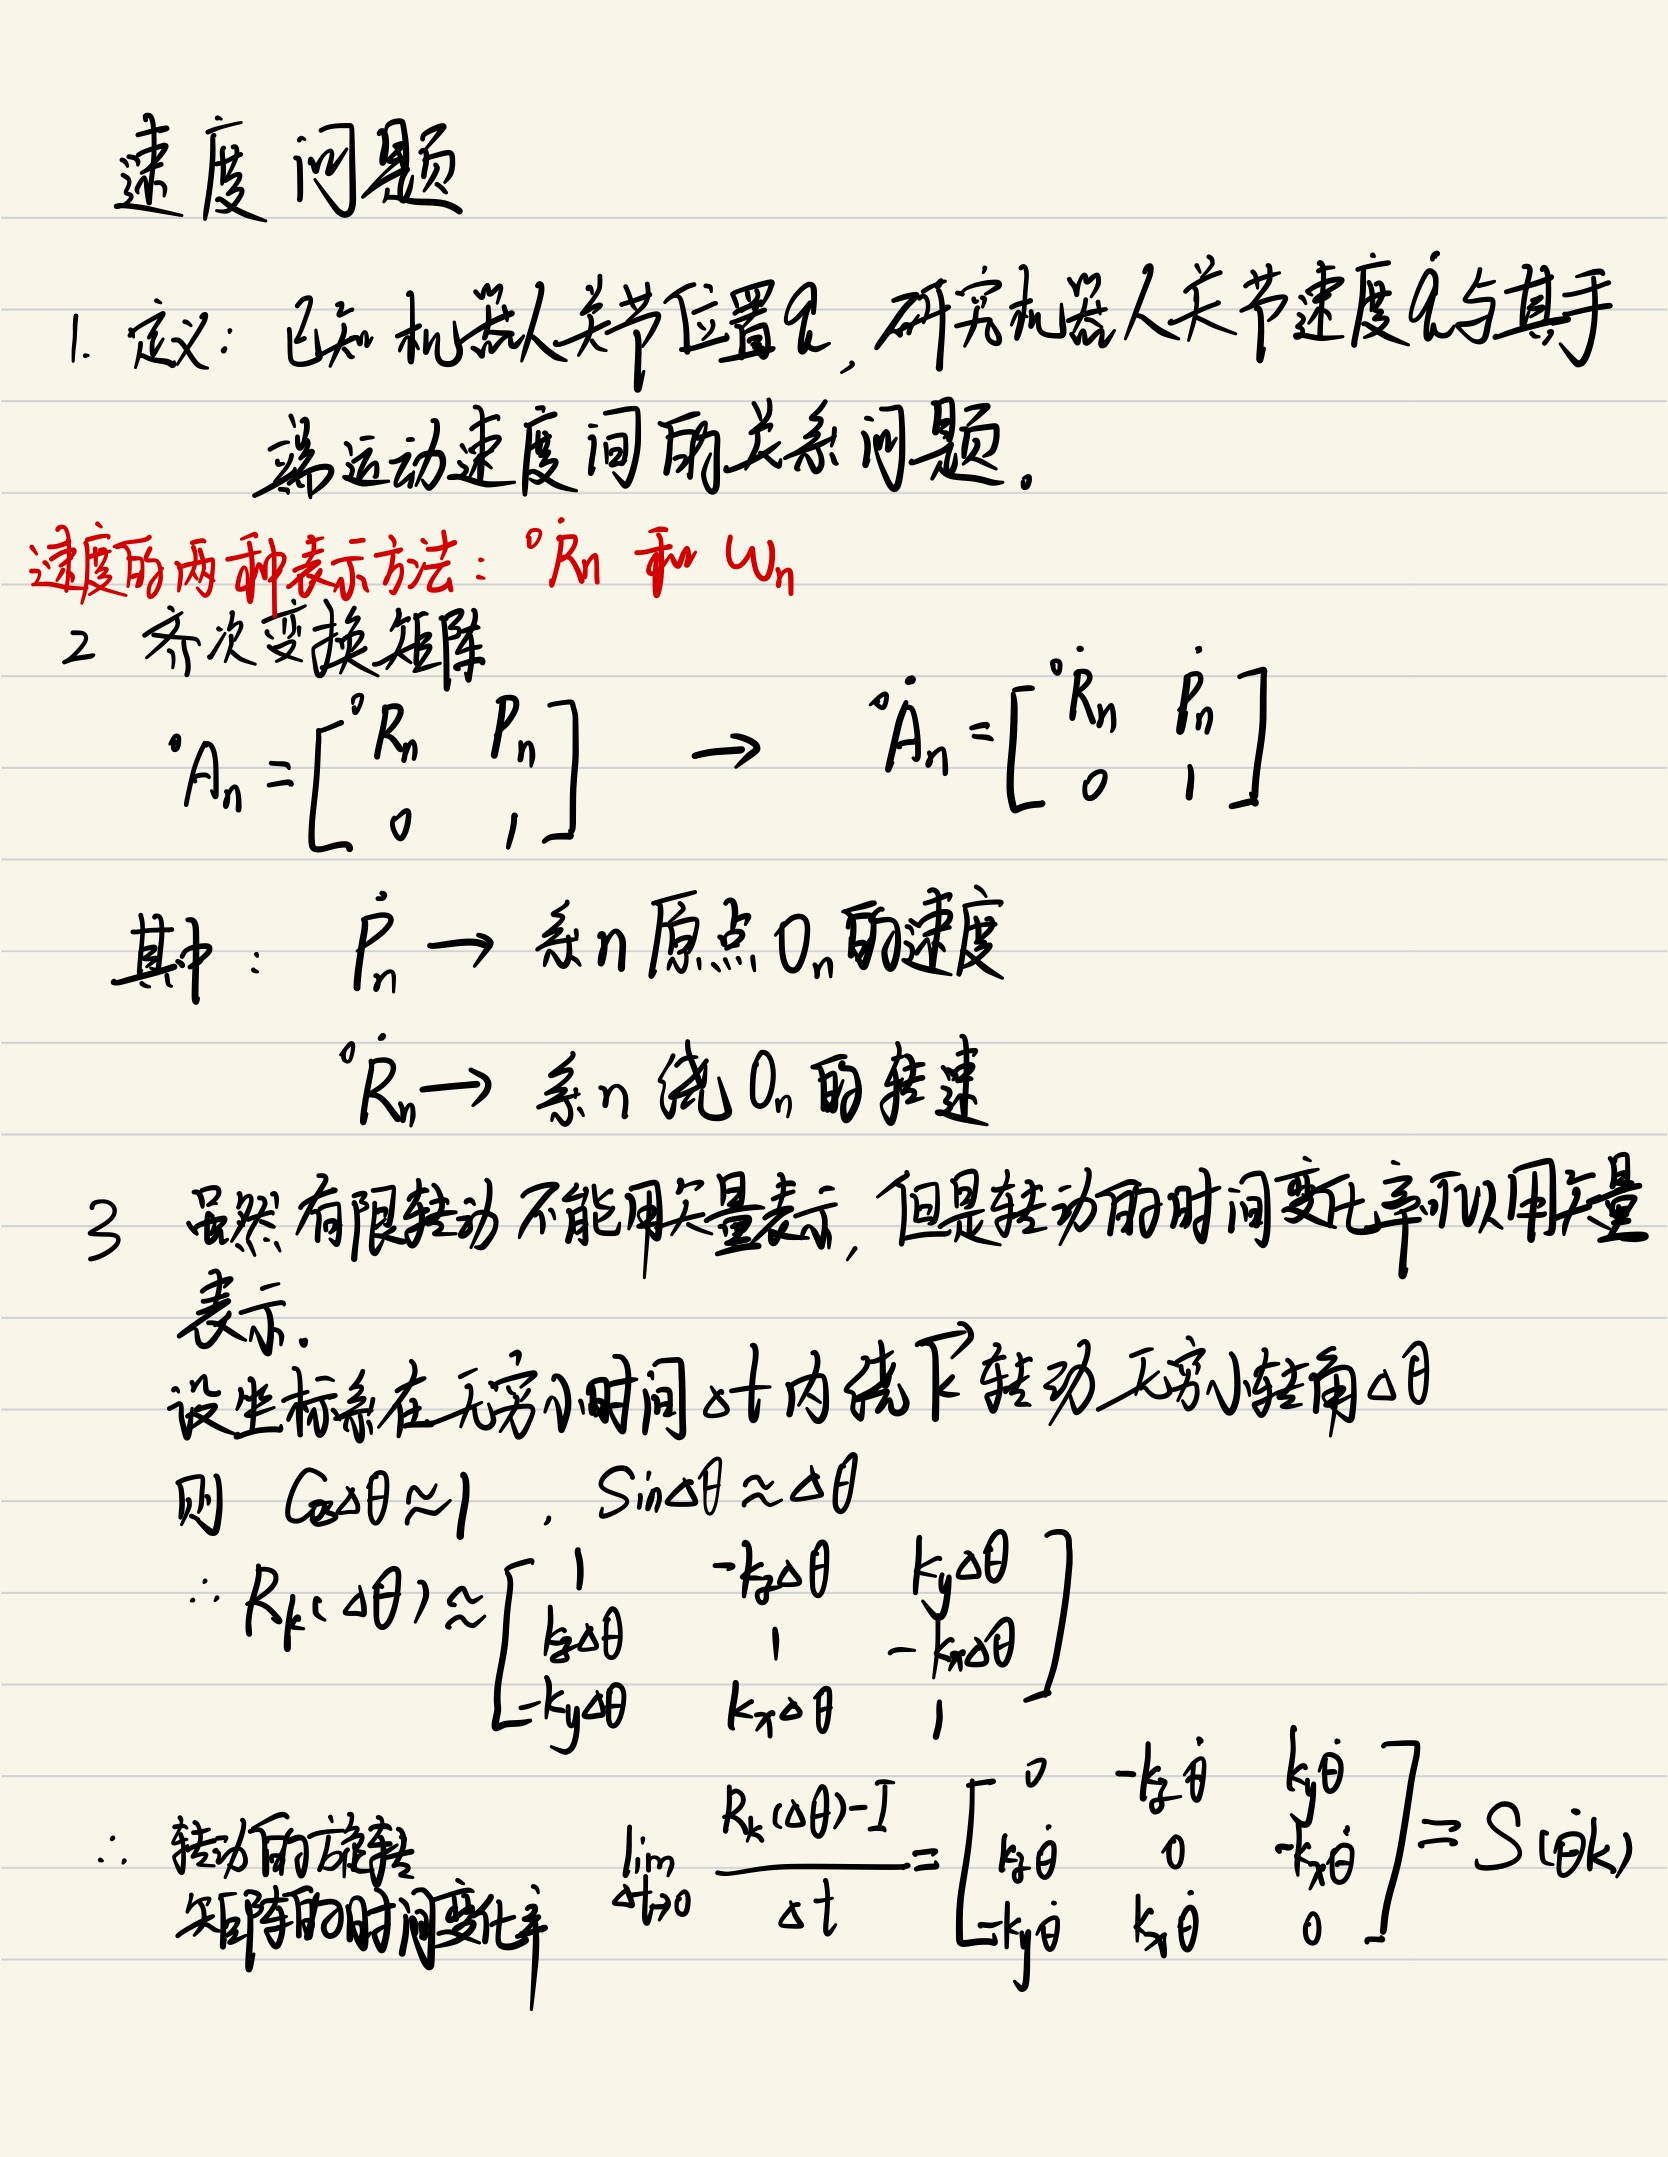 速度问题
1. 定义: 已知机器人关节位置q, 研究机器人关节速度q̇与其手
端运动速度间的关系问题.
速度的两种表示方法: ⁰Ṙn 和 ωn
2 齐次变换矩阵
⁰An = [⁰Rn Pn; 0 1] → ⁰Ȧn = [⁰Ṙn Ṗn; 0 1]
其中: Ṗn → 系n原点On的速度
⁰Ṙn → 系n绕On的转速
3 虽然有限转动不能用矢量表示, 但是转动的时间变化率可以用矢量
表示.
设坐标系在无穷小时间Δt内绕k⃗转动无穷小转角Δθ
则 CosΔθ≈1 , SinΔθ≈Δθ
∴ Rk(Δθ) ≈ [1 -kzΔθ kyΔθ; kzΔθ 1 -kxΔθ; -kyΔθ kxΔθ 1]
∴ 转动的旋转
矩阵的时间变化率 lim Δt→0 (Rk(Δθ)-I)/Δt = [0 -kzθ̇ kyθ̇; kzθ̇ 0 -kxθ̇; -kyθ̇ kxθ̇ 0] = S(θ̇k)